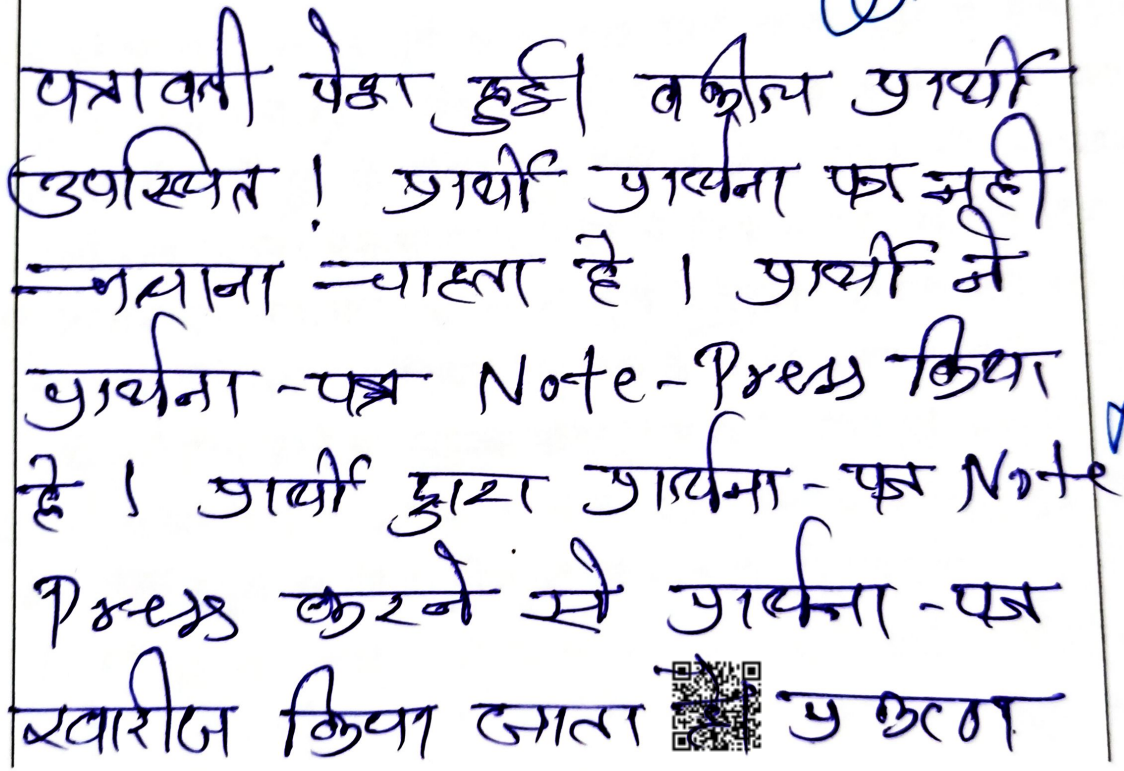 पत्रावली पेश हुई। वकील प्रार्थी
उपस्थित ! प्रार्थी प्रार्थना पत्र नही
चलाना चाहता है । प्रार्थी ने
प्रार्थना - पत्र Note - Press किया
है । प्रार्थी द्वारा प्रार्थना - पत्र Note
Press करने से प्रार्थना - पत्र
खारीज किया जाता है प्रकरण